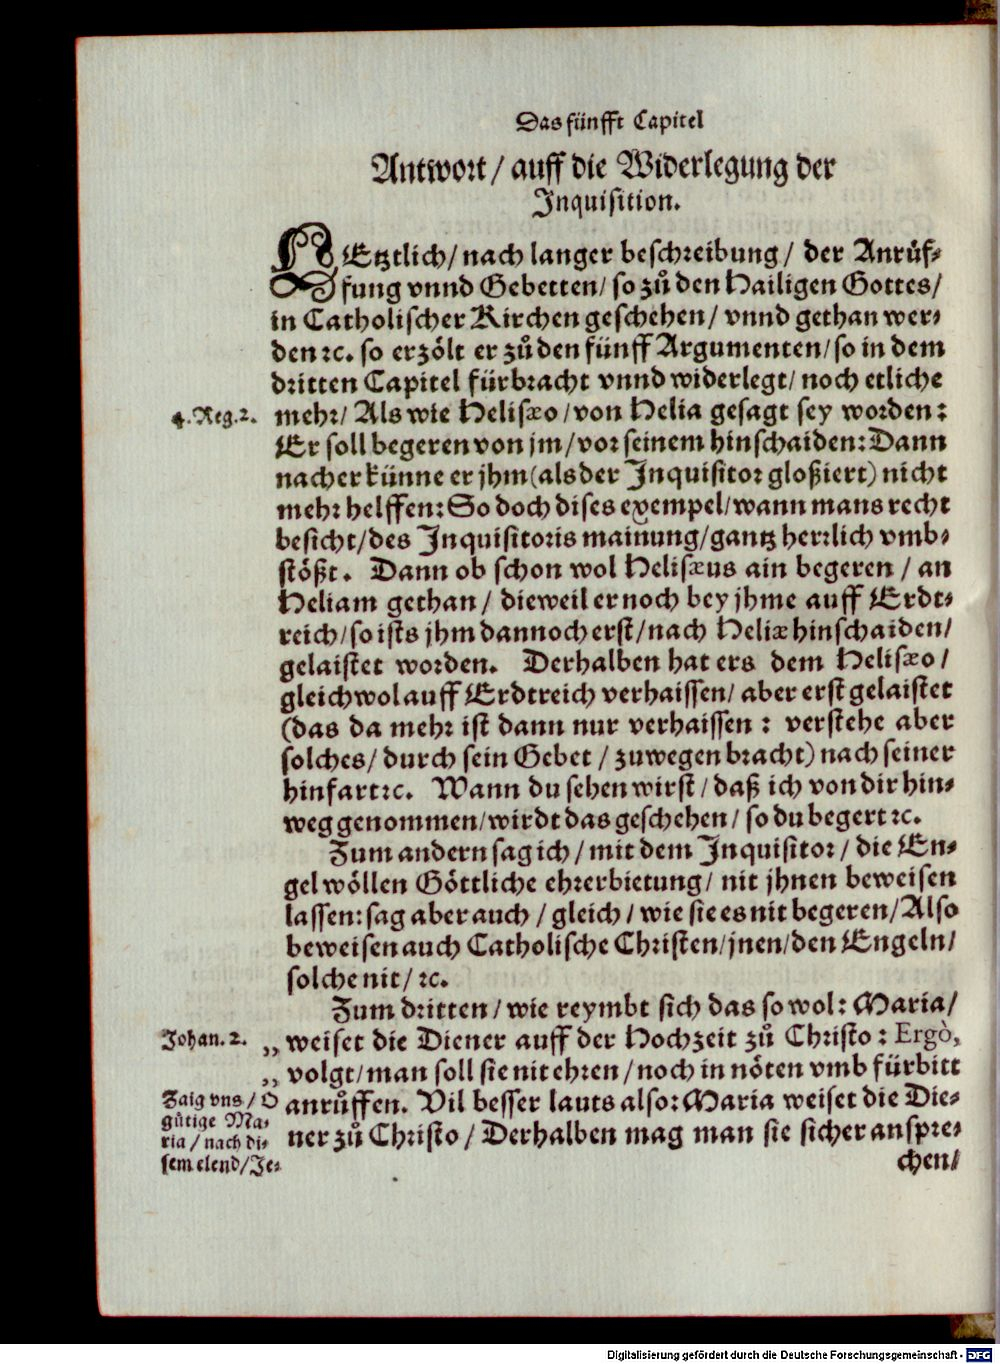 Das fünfft Capitel
Antwort/ auff die Widerlegung der
Inquisition.
LEtztlich/ nach langer beschreibung/ der Anrůf-
fung vnnd Gebetten/ so zů den Hailigen Gottes/
in Catholischer Kirchen geschehen/ vnnd gethan wer-
den ꝛc. so erzölt er zů den fünff Argumenten/ so in dem
dritten Capitel fürbracht vnnd widerlegt/ noch etliche
4. Reg. 2.
mehr/ Als wie Helisæo/ von Helia gesagt sey worden:
Er soll begeren von jm/ vor seinem hinschaiden: Dann
nacher künne er jhm (als der Inquisitor gloßiert) nicht
mehr helffen: So doch dises exempel/ wann mans recht
besicht/ des Inquisitoris mainung/ gantz herrlich vmb-
stößt. Dann ob schon wol Helisæus ain begeren/ an
Heliam gethan/ dieweil er noch bey jhme auff Erdt-
reich/ so ists jhm dannoch erst/ nach Heliæ hinschaiden/
gelaistet worden. Derhalben hat ers dem Helisæo/
gleichwol auff Erdtreich verhaissen/ aber erst gelaistet
(das da mehr ist dann nur verhaissen: verstehe aber
solches/ durch sein Gebet/ zuwegen bracht) nach seiner
hinfart ꝛc. Wann du sehen wirst/ daß ich von dir hin-
weg genommen/ wirdt das geschehen/ so du begert ꝛc.
Zum andern sag ich/ mit dem Inquisitor/ die En-
gel wöllen Göttliche ehrerbietung/ nit jhnen beweisen
lassen: sag aber auch/ gleich/ wie sie es nit begeren/ Also
beweisen auch Catholische Christen/ jnen/ den Engeln/
solche nit/ ꝛc.
Zum dritten/ wie reymbt sich das so wol: Maria/
Johan. 2.
„ weiset die Diener auff der Hochzeit zů Christo: Ergò,
„ volgt/ man soll sie nit ehren/ noch in nöten vmb fürbitt
anrůffen. Vil besser lauts also: Maria weiset die Die-
ner zů Christo/ Derhalben mag man sie sicher anspre-
Zaig vns/ O
gůtige Ma-
ria/ nach di-
sem elend/ Je-
chen/
Digitalisierung gefördert durch die Deutsche Forschungsgemeinschaft - DFG